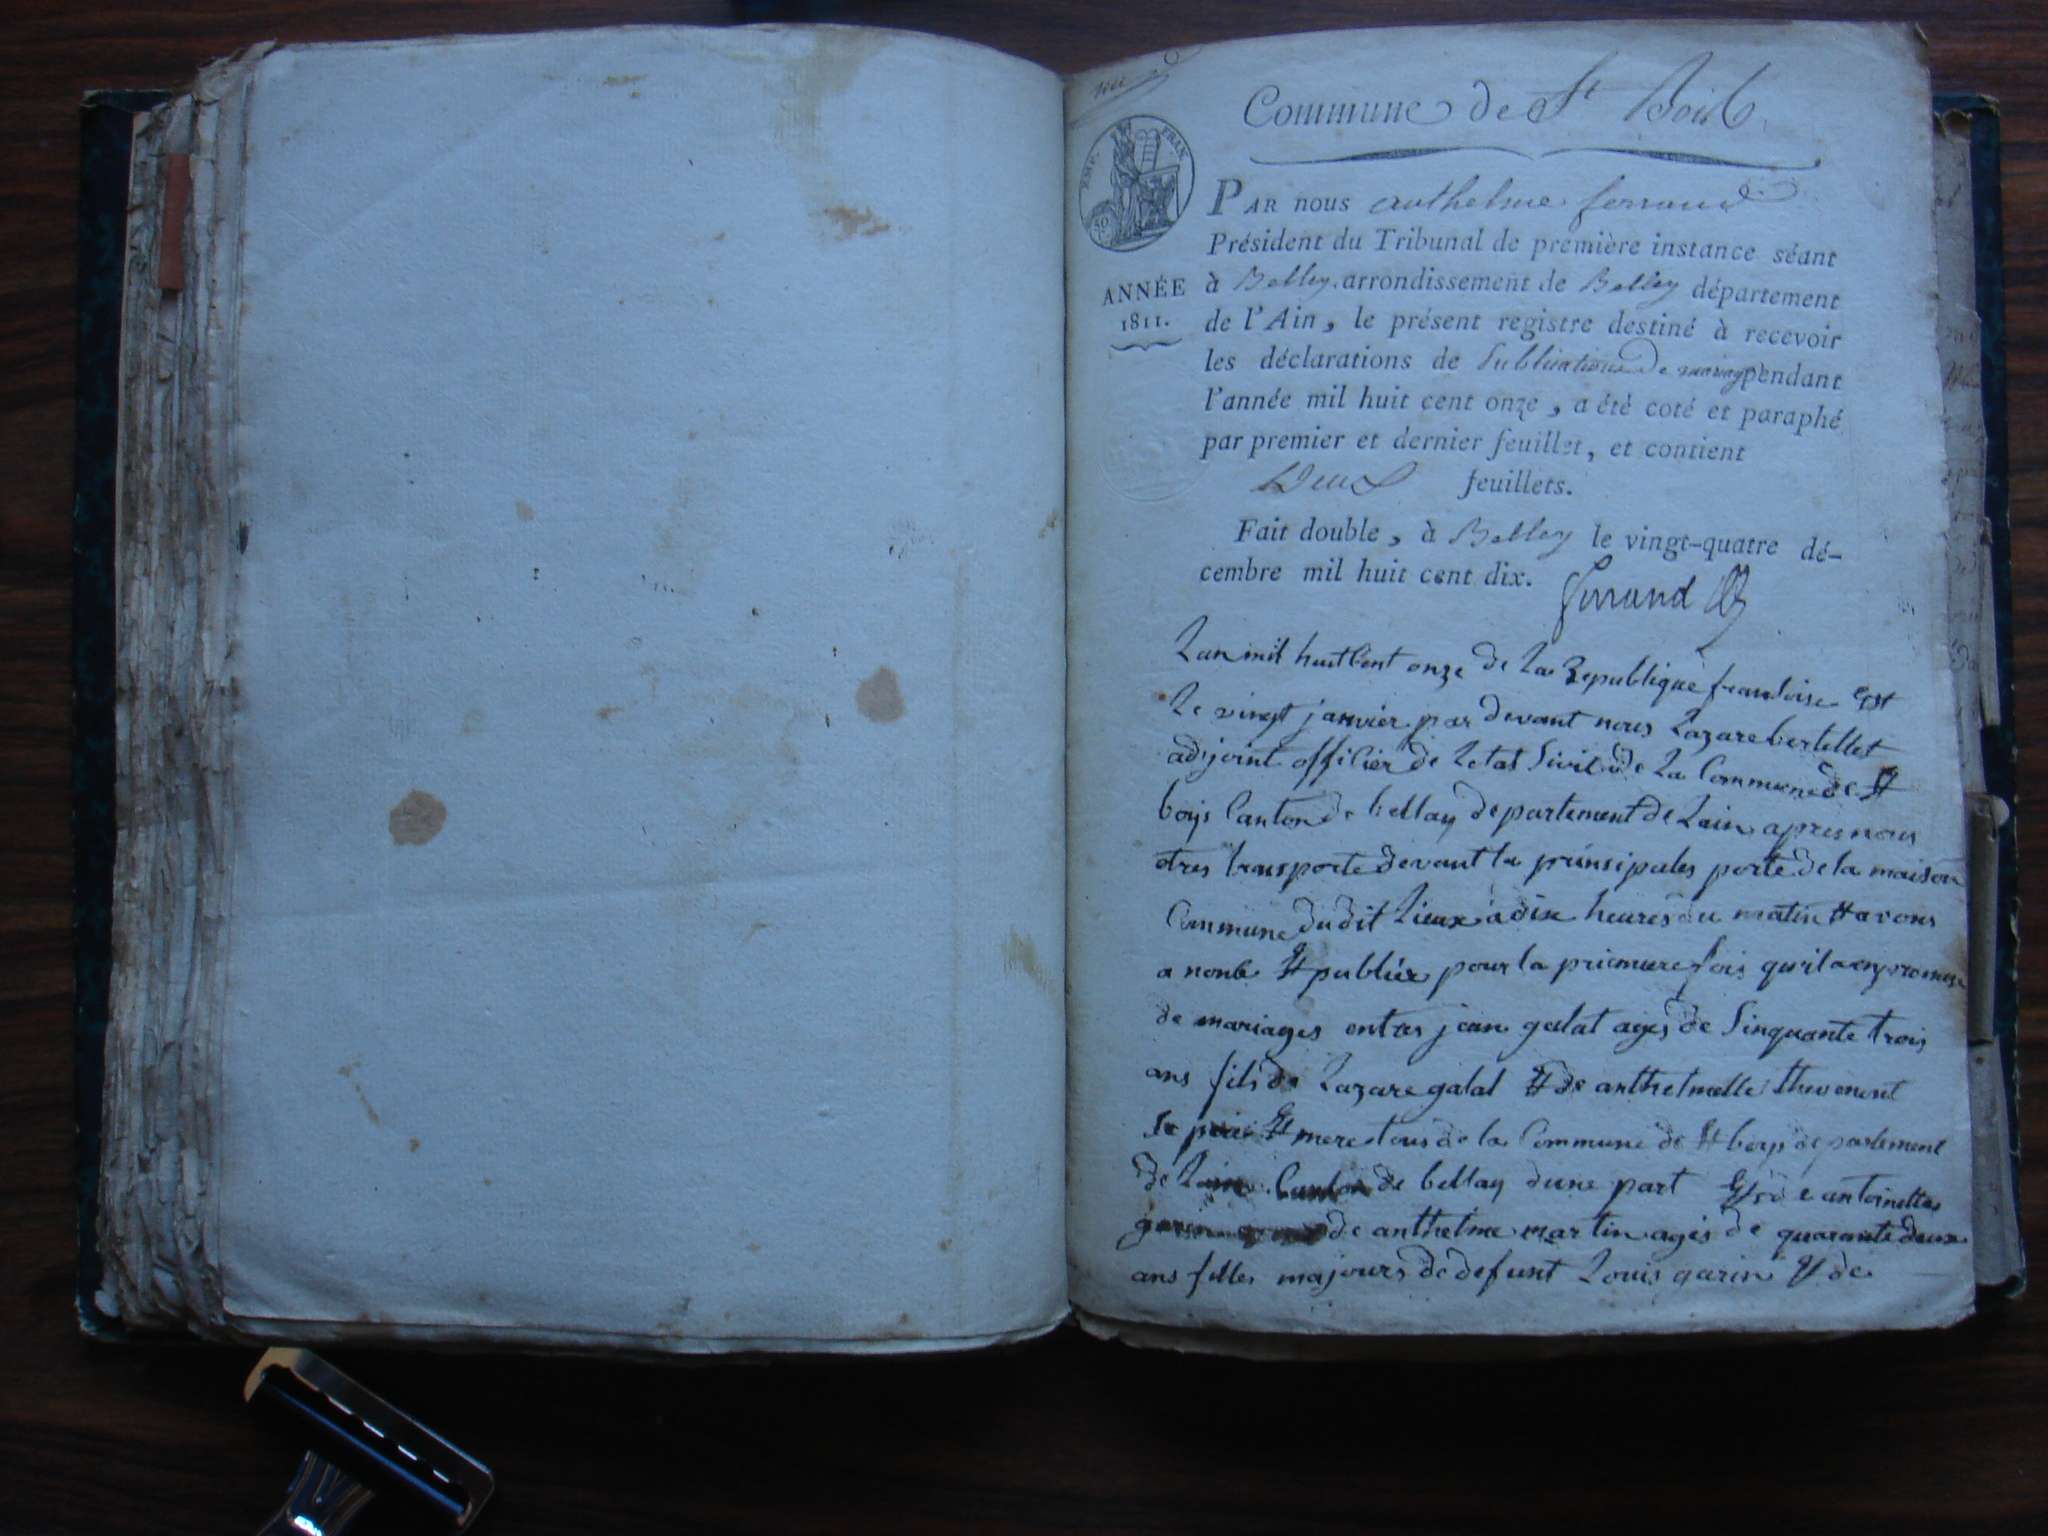 Commune de St Bois
EMP. FRAN.
50
PAR nous anthelme ferrand
Président du Tribunal de première instance séant
ANNÉE
1811.
à Belley arrondissement de Belley département
de l'Ain, le présent registre destiné à recevoir
les déclarations de Publications de mariage pendant
l'année mil huit cent onze, a été coté et paraphé
par premier et dernier feuillet, et contient
Deux feuillets.
Fait double, à Belley le vingt-quatre dé-
cembre mil huit cent dix.
ferrand
Lan mil huit Cent onze de La Republique francoise Et
Le vingt janvier par devant nous Lazare bertellet
adjoint officier de Letat Sivil de La Commune de St
boys Canton de bellay departement de Lain apres nous
etres transporte devant la prinsipales porte de la maison
Commune dudit Lieux a dix heures du matin Et avons
a nonse Et publiée pour la priemiere fois quil a
de mariages entres jean galat ages de Sinquante trois
ans fils de Lazare galat Et de anthelmelle thevenent
Se pere Et mere tous de la Commune de St boys departement
de Lain Canton de bellay dune part Et antoinettes
garin de anthelme martin ages de quarante deux
ans filles majours de defunt Louis garin Et de